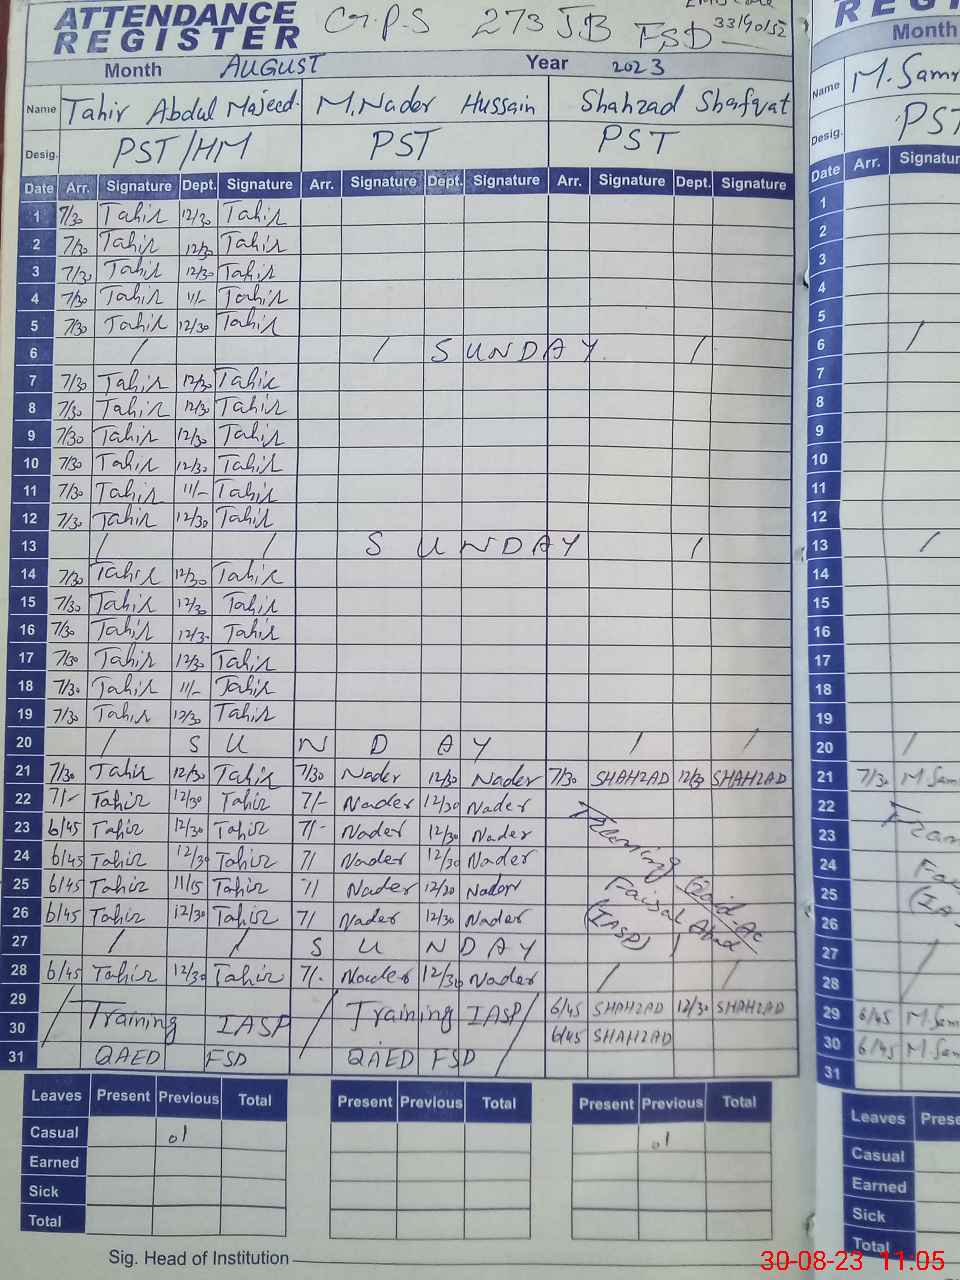 ATTENDANCE REGISTER G.P.S 273 JB FSD 33140152
Month AUGUST Year 2023
Name Tahir Abdul Majeed. M.Nader Hussain Shahzad Shafqat
Desig. PST/HM PST PST
Date Arr. Signature Dept. Signature Arr. Signature Dept. Signature Arr. Signature Dept. Signature
1 7/30 Tahir 12/30 Tahir
2 7/30 Tahir 12/30 Tahir
3 7/30 Tahir 12/30 Tahir
4 7/30 Tahir 11/- Tahir
5 7/30 Tahir 12/30 Tahir
6 / / SUNDAY. /
7 7/30 Tahir 12/30 Tahir
8 7/30 Tahir 12/30 Tahir
9 7/30 Tahir 12/30 Tahir
10 7/30 Tahir 12/30 Tahir
11 7/30 Tahir 11/- Tahir
12 7/30 Tahir 12/30 Tahir
13 / / SUNDAY /
14 7/30 Tahir 12/30 Tahir
15 7/30 Tahir 12/30 Tahir
16 7/30 Tahir 12/30 Tahir
17 7/30 Tahir 12/30 Tahir
18 7/30 Tahir 11/- Tahir
19 7/30 Tahir 12/30 Tahir
20 / SUNDAY / /
21 7/30 Tahir 12/30 Tahir 7/30 Nader 12/30 Nader 7/30 SHAHZAD 12/30 SHAHZAD
22 7/- Tahir 12/30 Tahir 7/- Nader 12/30 Nader
23 6/45 Tahir 12/30 Tahir 7/- Nader 12/30 Nader
24 6/45 Tahir 12/30 Tahir 7/ Nader 12/30 Nader
25 6/45 Tahir 11/15 Tahir 7/ Nader 12/30 Nader
26 6/45 Tahir 12/30 Tahir 7/ Nader 12/30 Nader
Training Qaid Ac
Faisal Abad
(IASP)
27 / / SUNDAY /
28 6/45 Tahir 12/30 Tahir 7/- Nader 12/30 Nader / /
29 / Training IASP / Training IASP / 6/45 SHAHZAD 12/30 SHAHZAD
30 6/45 SHAHZAD
31 QAED FSD QAED FSD
Leaves Present Previous Total Present Previous Total Present Previous Total
Casual 01 01
Earned
Sick
Total
Sig. Head of Institution
REG
Month
Name M.Sam
Desig. PST
Date Arr. Signatu
1
2
3
4
5
6 /
7
8
9
10
11
12
13 /
14
15
16
17
18
19
20 /
21 7/30 M.Sam
22
23
24
25
26
27 /
28
29 6/45 M.Sam
30 6/45 M.Sam
31
Leaves Prese
Casual
Earned
Sick
Total
30-08-23 11:05